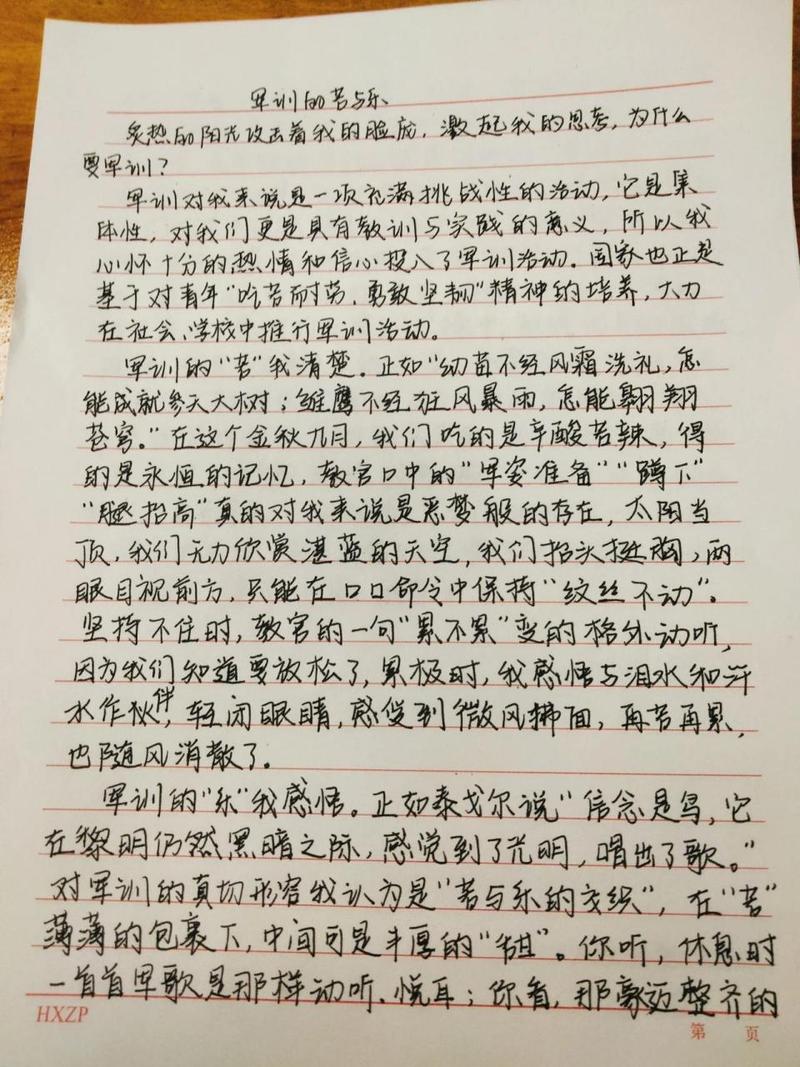 军训的苦与乐
炙热的阳光攻击着我的脸庞，激起我的思考，为什么
要军训？
军训对我来说是一项充满挑战性的活动，它是集
体性，对我们更是具有教训与实践的意义，所以我
心怀十分的热情和信心投入了军训活动。国家也正是
基于对青年“吃苦而耐劳，勇敢坚韧”精神的培养，大力
在社会、学校中推行军训活动。
军训的“苦”我清楚。正如“幼苗不经风霜洗礼，怎
能成就参天大树；雏鹰不经狂风暴雨，怎能翱翔
苍穹。”在这个金秋九月，我们吃的是辛酸苦辣，得
的是永恒的记忆，教官口中的“军姿准备”“蹲下”
“腿抬高”真的对我来说是恶梦般的存在，太阳当
顶，我们无力欣赏湛蓝的天空，我们抬头挺胸，两
眼目视前方，只能在口口命令中保持“纹丝不动”。
坚持不住时，教官的一句“累不累”变的格外动听，
因为我们知道要放松了，累极时，我感悟与泪水和汗
水作伙伴，轻闭眼睛，感受到微风拂面，再苦再累，
也随风消散了。
军训的“乐”我感悟。正如泰戈尔说“信念是鸟，它
在黎明仍然黑暗之际，感觉到了光明，唱出了歌。”
对军训的真切形容我认为是“苦与乐的交织”，在“苦”
薄薄的包裹下，中间可是丰厚的“甜”。你听，休息时
一首首军歌是那样动听、悦耳；你看，那豪迈整齐的
HXZP
第 页